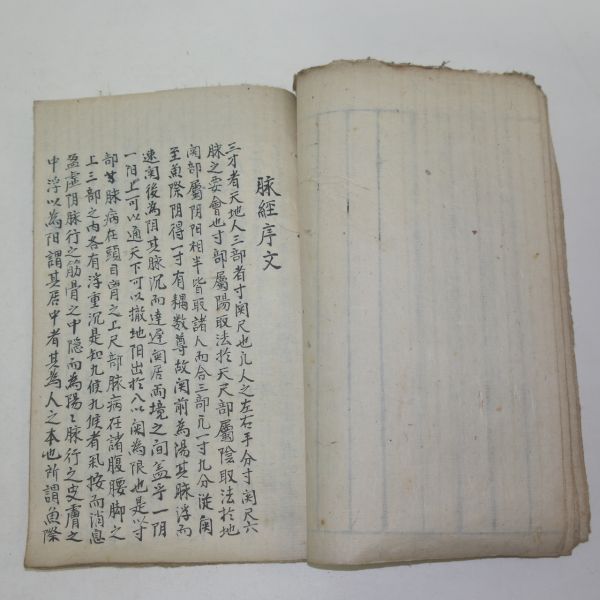 脉經序文
三才者天地人三部者寸関尺也凢人之左右手分寸関尺六
脉之要會也寸部屬陽取法於天尺部屬陰取法於地
関部屬阴阳相半皆取諸人而合三部元一寸九分從関
至魚際阴得一寸有耦数尊故関前為湯其脉浮而
速関後為阴其脉沉而遅関居両境之间盖乎一阴
一阳上可以通天下可以撤地阳出於八以関為限也是以寸
部其脉病在頭目胷之上尺部脉病在諸腹腰脚之
上三部之內各有浮重沉是知九候九候者氣按而消息
盈虛阴脉行之筋骨之中隠而為陽阳脉行之皮膚之
中浮以為阳謂其居中者其為人之本也所謂魚際